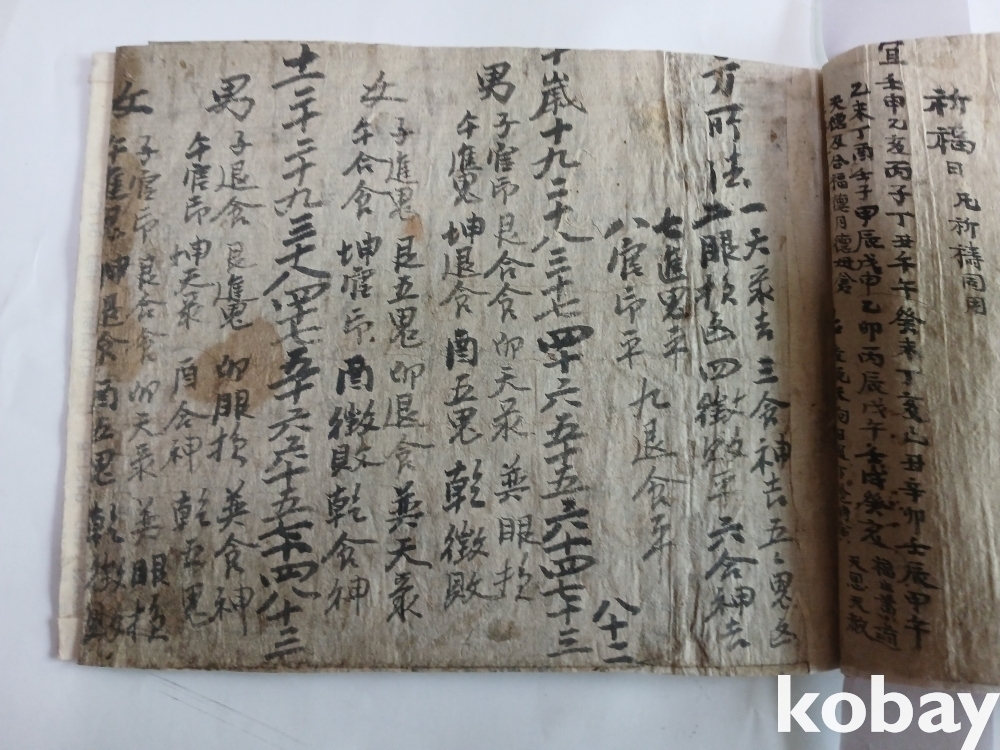 祈福日 凡祈禱同用
宜壬申乙亥丙子丁丑壬午癸未丁亥己丑辛卯壬辰甲午
乙未丁酉壬子甲辰戊申乙卯丙辰戊午壬戌癸亥
天德及合福德月德母倉
天恩天赦
方所法
一天彔吉 三食神吉 五五鬼凶
二眼损凶 四徵敗平 六合神吉
七進鬼平
八官印平 九退食平
十歲十九二十八三十七四十六五十五六十四七十三
八十二
男
子官印 艮合食 卯天彔 巽眼损
午進鬼 坤退食 酉五鬼 乾徵敗
女
子進鬼 艮五鬼 卯退食 巽天彔
午合食 坤官印 酉徵敗 乾食神
十一二十二十九三十八四十七五十六六十五七十四八十三
男
子退食 艮進鬼 卯眼损 巽食神
午官印 坤天彔 酉合神 乾五鬼
女
子官印 艮合食 卯天彔 巽眼损
午進鬼 坤退食 酉五鬼 乾徵敗
kobay